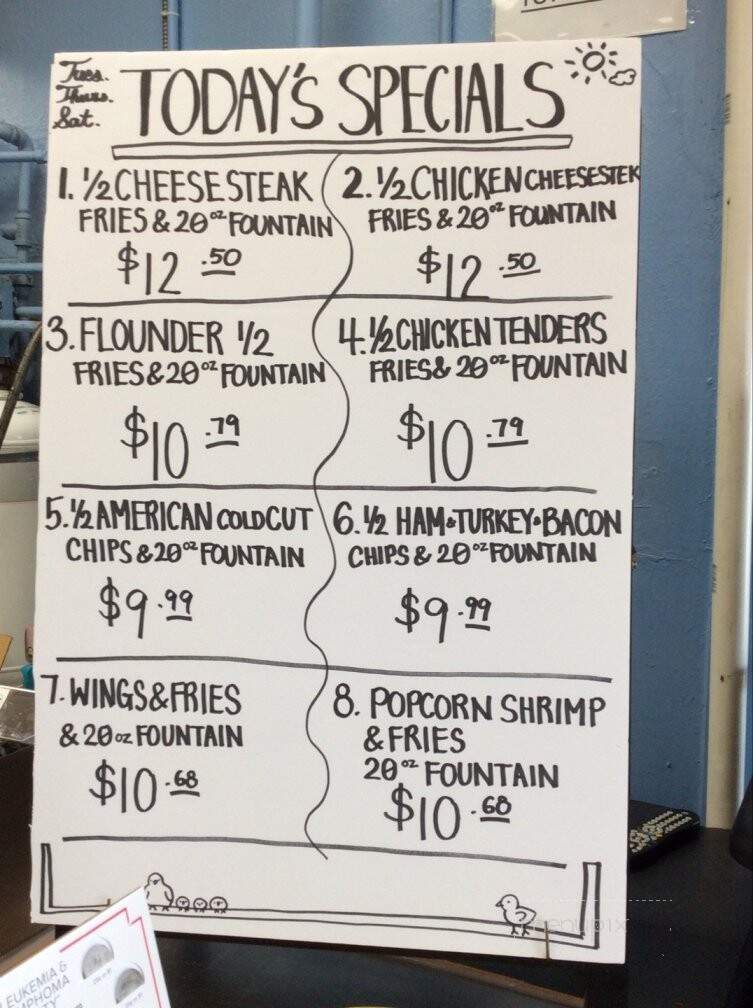 Tues.
Thurs.
Sat.
TODAY'S SPECIALS
1. 1/2 CHEESESTEAK
FRIES & 20oz FOUNTAIN
$12.50
2. 1/2 CHICKEN CHEESESTEK
FRIES & 20oz FOUNTAIN
$12.50
3. FLOUNDER 1/2
FRIES & 20oz FOUNTAIN
$10.79
4. 1/2 CHICKEN TENDERS
FRIES & 20oz FOUNTAIN
$10.79
5. 1/2 AMERICAN COLD CUT
CHIPS & 20oz FOUNTAIN
$9.99
6. 1/2 HAM•TURKEY•BACON
CHIPS & 20oz FOUNTAIN
$9.99
7. WINGS & FRIES
& 20oz FOUNTAIN
$10.68
8. POPCORN SHRIMP
& FRIES
20oz FOUNTAIN
$10.68
LEUKEMIA &